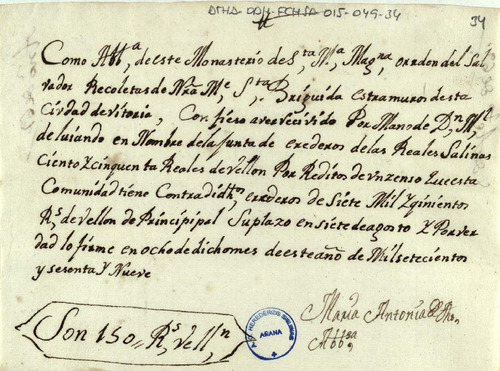 ATHA-DAH-FCHSA-015-049-34
34
Como Abb.ª, de este Monasterio de S.ta M.ª Mag.na, orn den del Sal
vador Recoletas de Nra M.e, S.ta Brigida estramuros desta
Ciudad de Vitoria, Confieso aver recivido Por Mano de D.n M.l
de luiando en Nombre de la Junta de erederos de las Reales Salinas
Ciento Y cinquenta Reales de Vellon Por Reditos de Vn zenso Que esta
Comunidad tiene Contra didhos erederos de Siete Mil Y quinientos
R.s de Vellon de Principipal Su plazo en siete de agosto Y Por ver
dad lo firme en ocho de dicho mes de este año de Mil setecientos
y sesenta Y Nueve
Son 150,, R.s vell.n
HEREDEROS SALINAS
AÑANA
Maria Antonia
Abb.sa